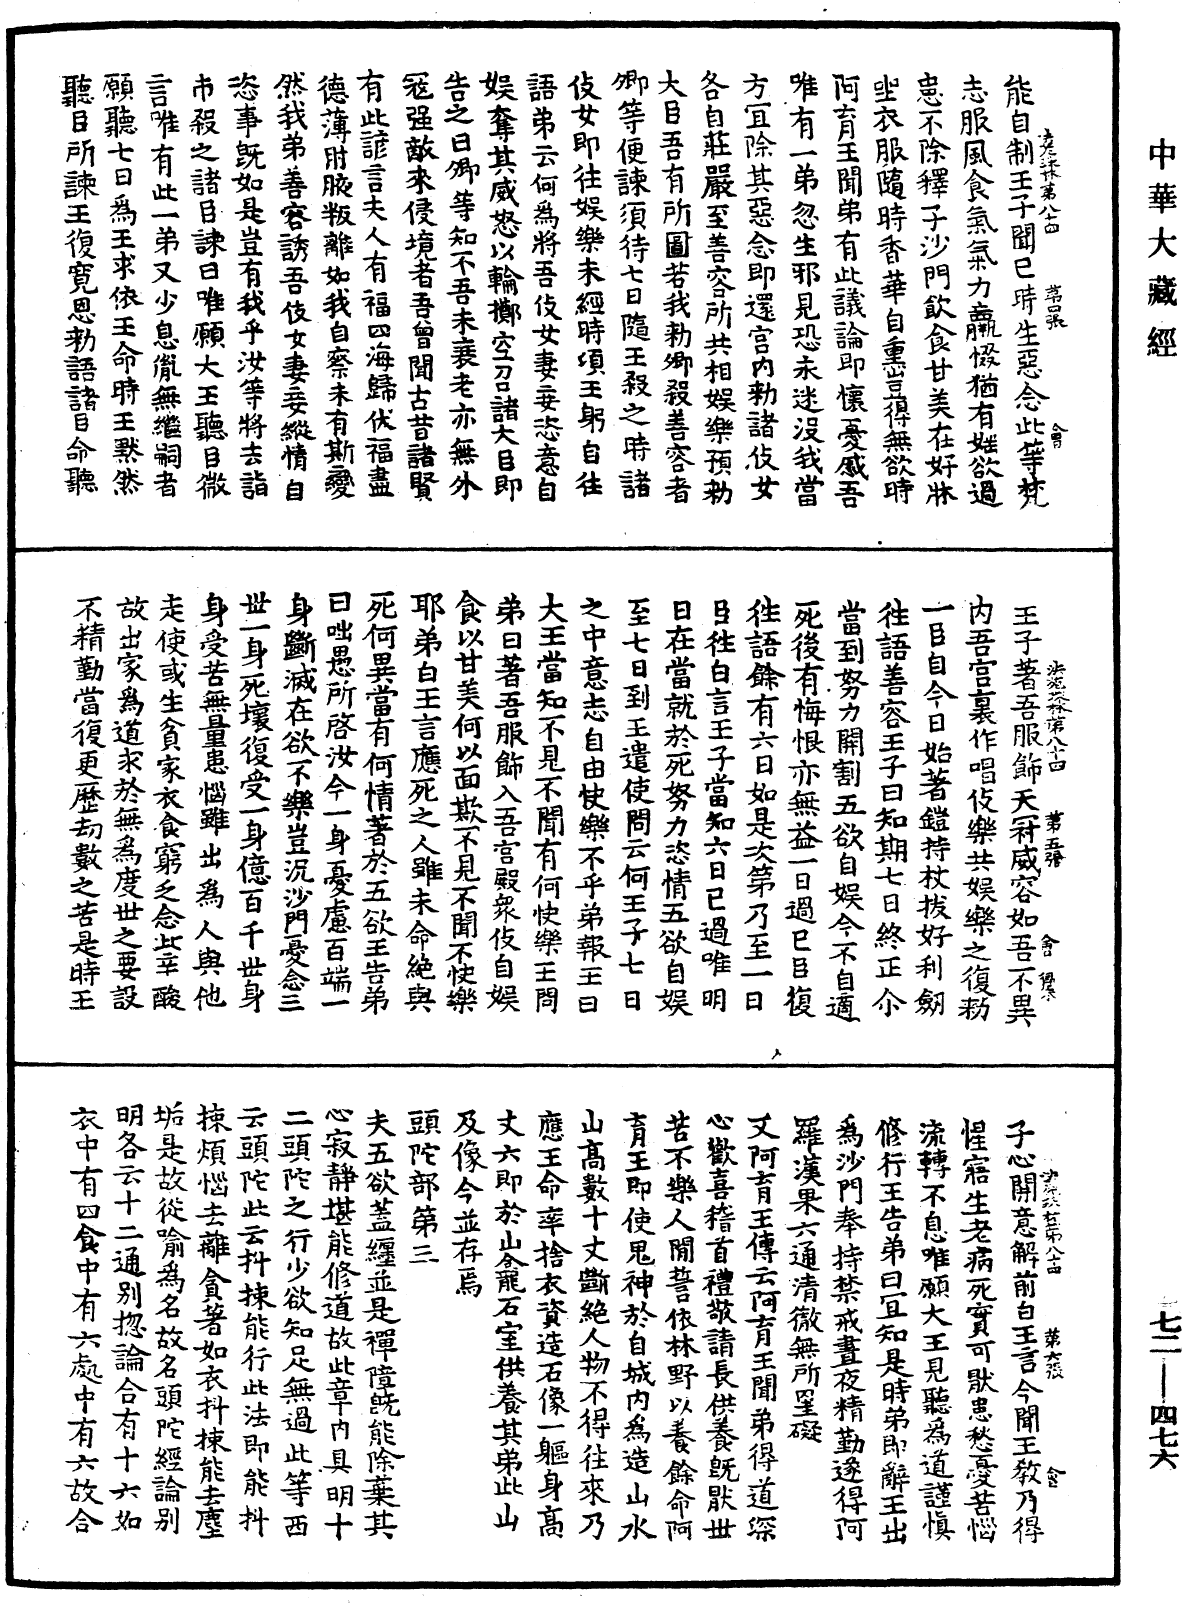 中華大藏經
能自制王子聞已時生惡念此等梵
志服風食氣氣力羸惙猶有婬欲過
患不除釋子沙門飲食甘美在好牀
坐衣服隨時香華自熏豈得無欲時
阿育王聞弟有此議論即懷憂慼吾
唯有一弟忽生邪見恐永迷沒我當
方宜除其惡念即還宮內勑諸伎女
各自莊嚴至善容所共相娛樂預勑
大臣吾有所圖若我勑卿殺善容者
卿等便諫須待七日隨王殺之時諸
伎女即往娛樂未經時頃王躬自往
語弟云何為將吾伎女妻妾恣意自
娛奮其威怒以輪擲空召諸大臣即
告之曰卿等知不吾未衰老亦無外
寇强敵來侵境者吾曾聞古昔諸賢
有此諺言夫人有福四海歸伏福盡
德薄肘腋叛離如我自察未有斯變
然我弟善容誘吾伎女妻妾縱情自
恣事既如是豈有我乎汝等將去詣
市殺之諸臣諫曰唯願大王聽臣微
言唯有此一弟又少息胤無繼嗣者
願聽七日為王求依王命時王默然
聽臣所諫王復寬恩勑語諸臣命聽
王子著吾服飾天冠威容如吾不異
內吾宮裏作唱伎樂共娛樂之復勑
一臣自今日始著鎧持杖拔好利劒
往語善容王子曰知期七日終正尒
當到努力開割五欲自娛今不自適
死後有悔恨亦無益一日過已臣復
往語餘有六日如是次第乃至一日
臣往白言王子當知六日已過唯明
日在當就於死努力恣情五欲自娛
至七日到王遣使問云何王子七日
之中意志自由快樂不乎弟報王曰
大王當知不見不聞有何快樂王問
弟曰著吾服飾入吾宮殿衆伎自娛
食以甘美何以面欺不見不聞不快樂
耶弟白王言應死之人雖未命絕與
死何異當有何情著於五欲王告弟
曰咄愚所啓汝今一身憂慮百端一
身斷滅在欲不樂豈況沙門憂念三
世一身死壞復受一身億百千世身
身受苦無量患惱雖出為人與他
走使或生貧家衣食窮乏念此辛酸
故出家為道求於無為度世之要設
不精勤當復更歷劫數之苦是時王
子心開意解前白王言今聞王教乃得
惺寤生老病死實可猒患愁憂苦惱
流轉不息唯願大王見聽為道謹慎
修行王告弟曰宜知是時弟即辭王出
為沙門奉持禁戒晝夜精勤遂得阿
羅漢果六通清徹無所罣礙
又阿育王傳云阿育王聞弟得道深
心歡喜稽首禮敬請長供養既猒世
苦不樂人間誓依林野以養餘命阿
育王即使鬼神於自城內為造山水
山高數十丈斷絕人物不得往來乃
應王命率捨衣資造石像一軀身高
丈六即於山龕石室供養其弟此山
及像今並存焉
頭陀部第三
夫五欲蓋纏並是禪障既能除棄其
心寂靜堪能修道故此章內具明十
二頭陀之行少欲知足無過此等西
云頭陀此云抖揀能行此法即能抖
揀煩惱去離貪著如衣抖揀能去塵
垢是故從喻為名故名頭陀經論別
明各云十二通別揔論合有十六如
衣中有四食中有六處中有六故合
七二—四七六